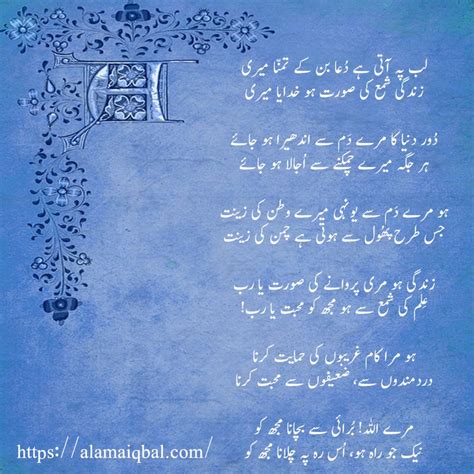 لب پہ آتی ہے دُعا بن کے تمنّا میری
زندگی شمع کی صورت ہو خدایا میری
دُور دنیا کا مرے دَم سے اندھیرا ہو جائے
ہر جگہ میرے چمکنے سے اُجالا ہو جائے
ہو مرے دَم سے یونہی میرے وطن کی زینت
جس طرح پھول سے ہوتی ہے چمن کی زینت
زندگی ہو مری پروانے کی صورت یا رب
عِلم کی شمع سے ہو مجھ کو محبت یا رب!
ہو مرا کام غریبوں کی حمایت کرنا
دردمندوں سے، ضعیفوں سے محبت کرنا
مرے اللہ! بُرائی سے بچانا مجھ کو
نیک جو راہ ہو، اُس رہ پہ چلانا مجھ کو
https://alamaiqbal.com/